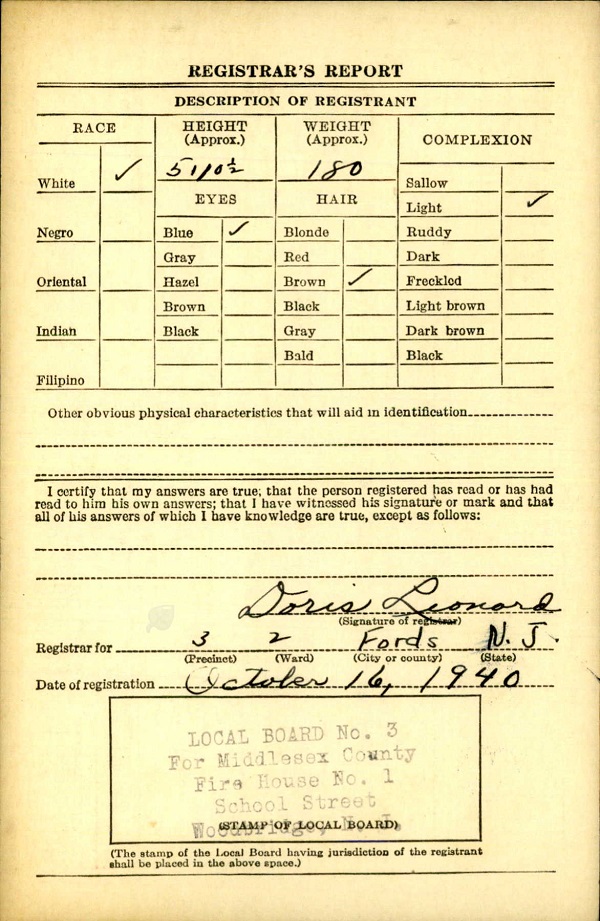 REGISTRAR'S REPORT
DESCRIPTION OF REGISTRANT
RACE HEIGHT (Approx.) WEIGHT (Approx.) COMPLEXION
White ✓ 5 11 0½ 180 Sallow
EYES HAIR Light ✓
Negro Blue ✓ Blonde Ruddy
Gray Red Dark
Oriental Hazel Brown ✓ Freckled
Brown Black Light brown
Indian Black Gray Dark brown
Bald Black
Filipino
Other obvious physical characteristics that will aid in identification
I certify that my answers are true; that the person registered has read or has had
read to him his own answers; that I have witnessed his signature or mark and that
all of his answers of which I have knowledge are true, except as follows:
Doris Leonard
(Signature of registrar)
Registrar for 3 2 Fords N. J.
(Precinct) (Ward) (City or county) (State)
Date of registration October 16, 1940
LOCAL BOARD No. 3
For Middlesex County
Fire House No. 1
School Street
(STAMP OF LOCAL BOARD)
Woodbridge, N. J.
(The stamp of the Local Board having jurisdiction of the registrant
shall be placed in the above space.)